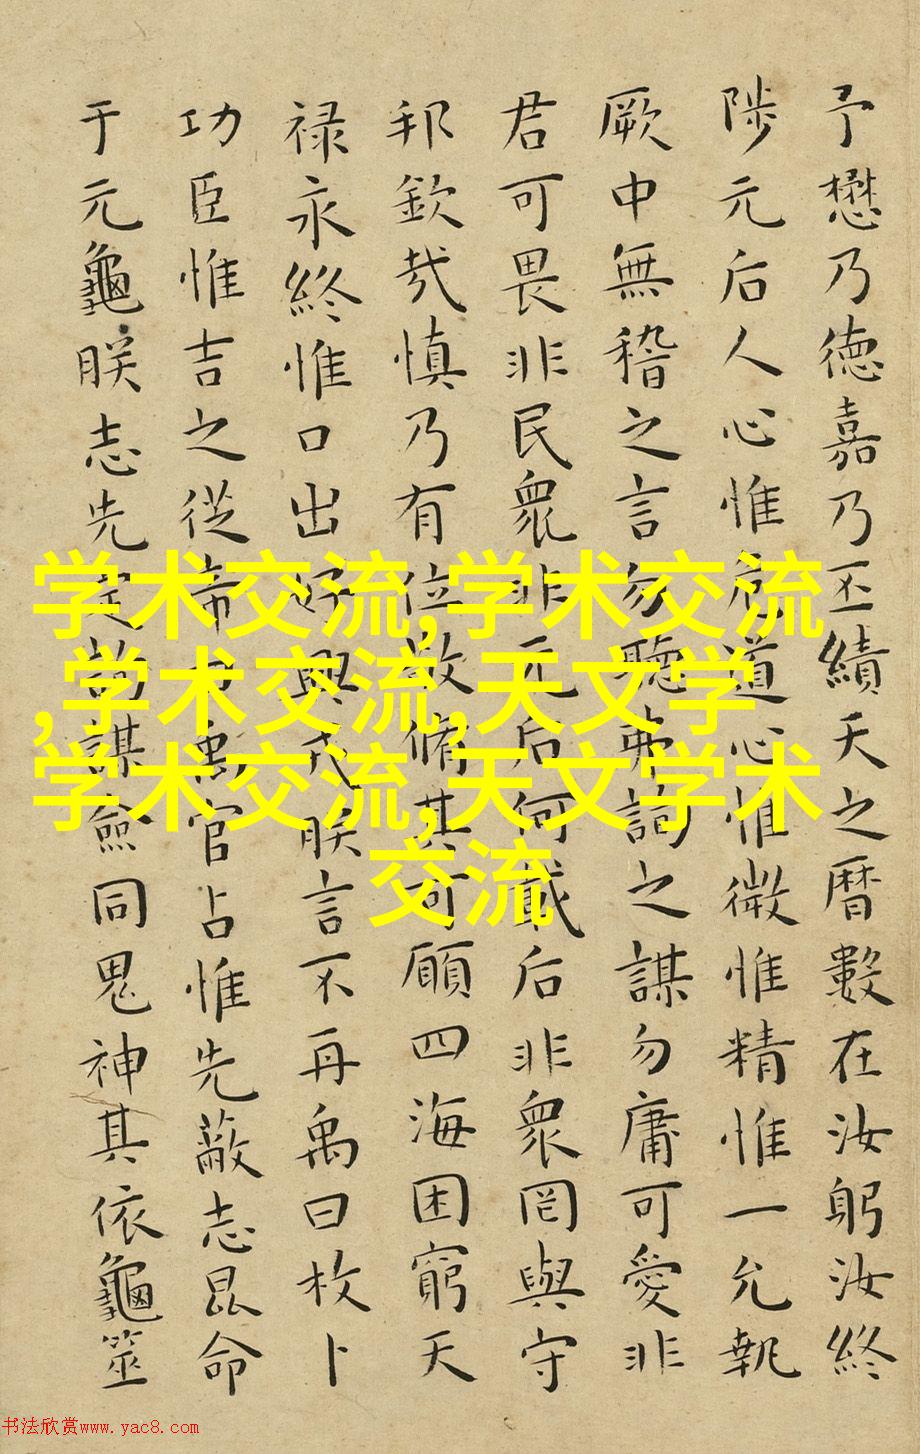 予懋乃德嘉乃丕績天之曆數在汝躬汝終
陟元后人心惟危道心惟微惟精惟一允執
厥中無稽之言勿聽弗詢之謀勿庸可愛非
君可畏非民衆非元后何戴后非衆罔與守
邦欽哉慎乃有位敬脩其可願四海困窮天
禄永終惟口出好興戎朕言不再禹曰枚卜
功臣惟吉之從帝曰禹官占惟先蔽志昆命
于元龜朕志先定詢謀僉同鬼神其依龜筮
学术交流,学术交流
,学术交流,天文学
学术交流,天文学术
交流
书法欣赏www.yac8.com